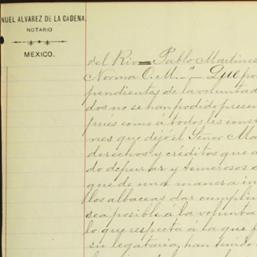 NUEL ALVAREZ DE LA CADENA,
NOTARIO
MEXICO.
del Rio= Pablo Martines
Norma C. M.
pendientes de la voluntad
dos no se han podido presen
pués como á todos les cons
nes que dejó el Señor Ma
derechos y créditos que
do depurar y temerosos
que de una manera in
los albaceas dar cumpli
sea posible á la volunta
lo que respecta á la que
su legataria, han tenido